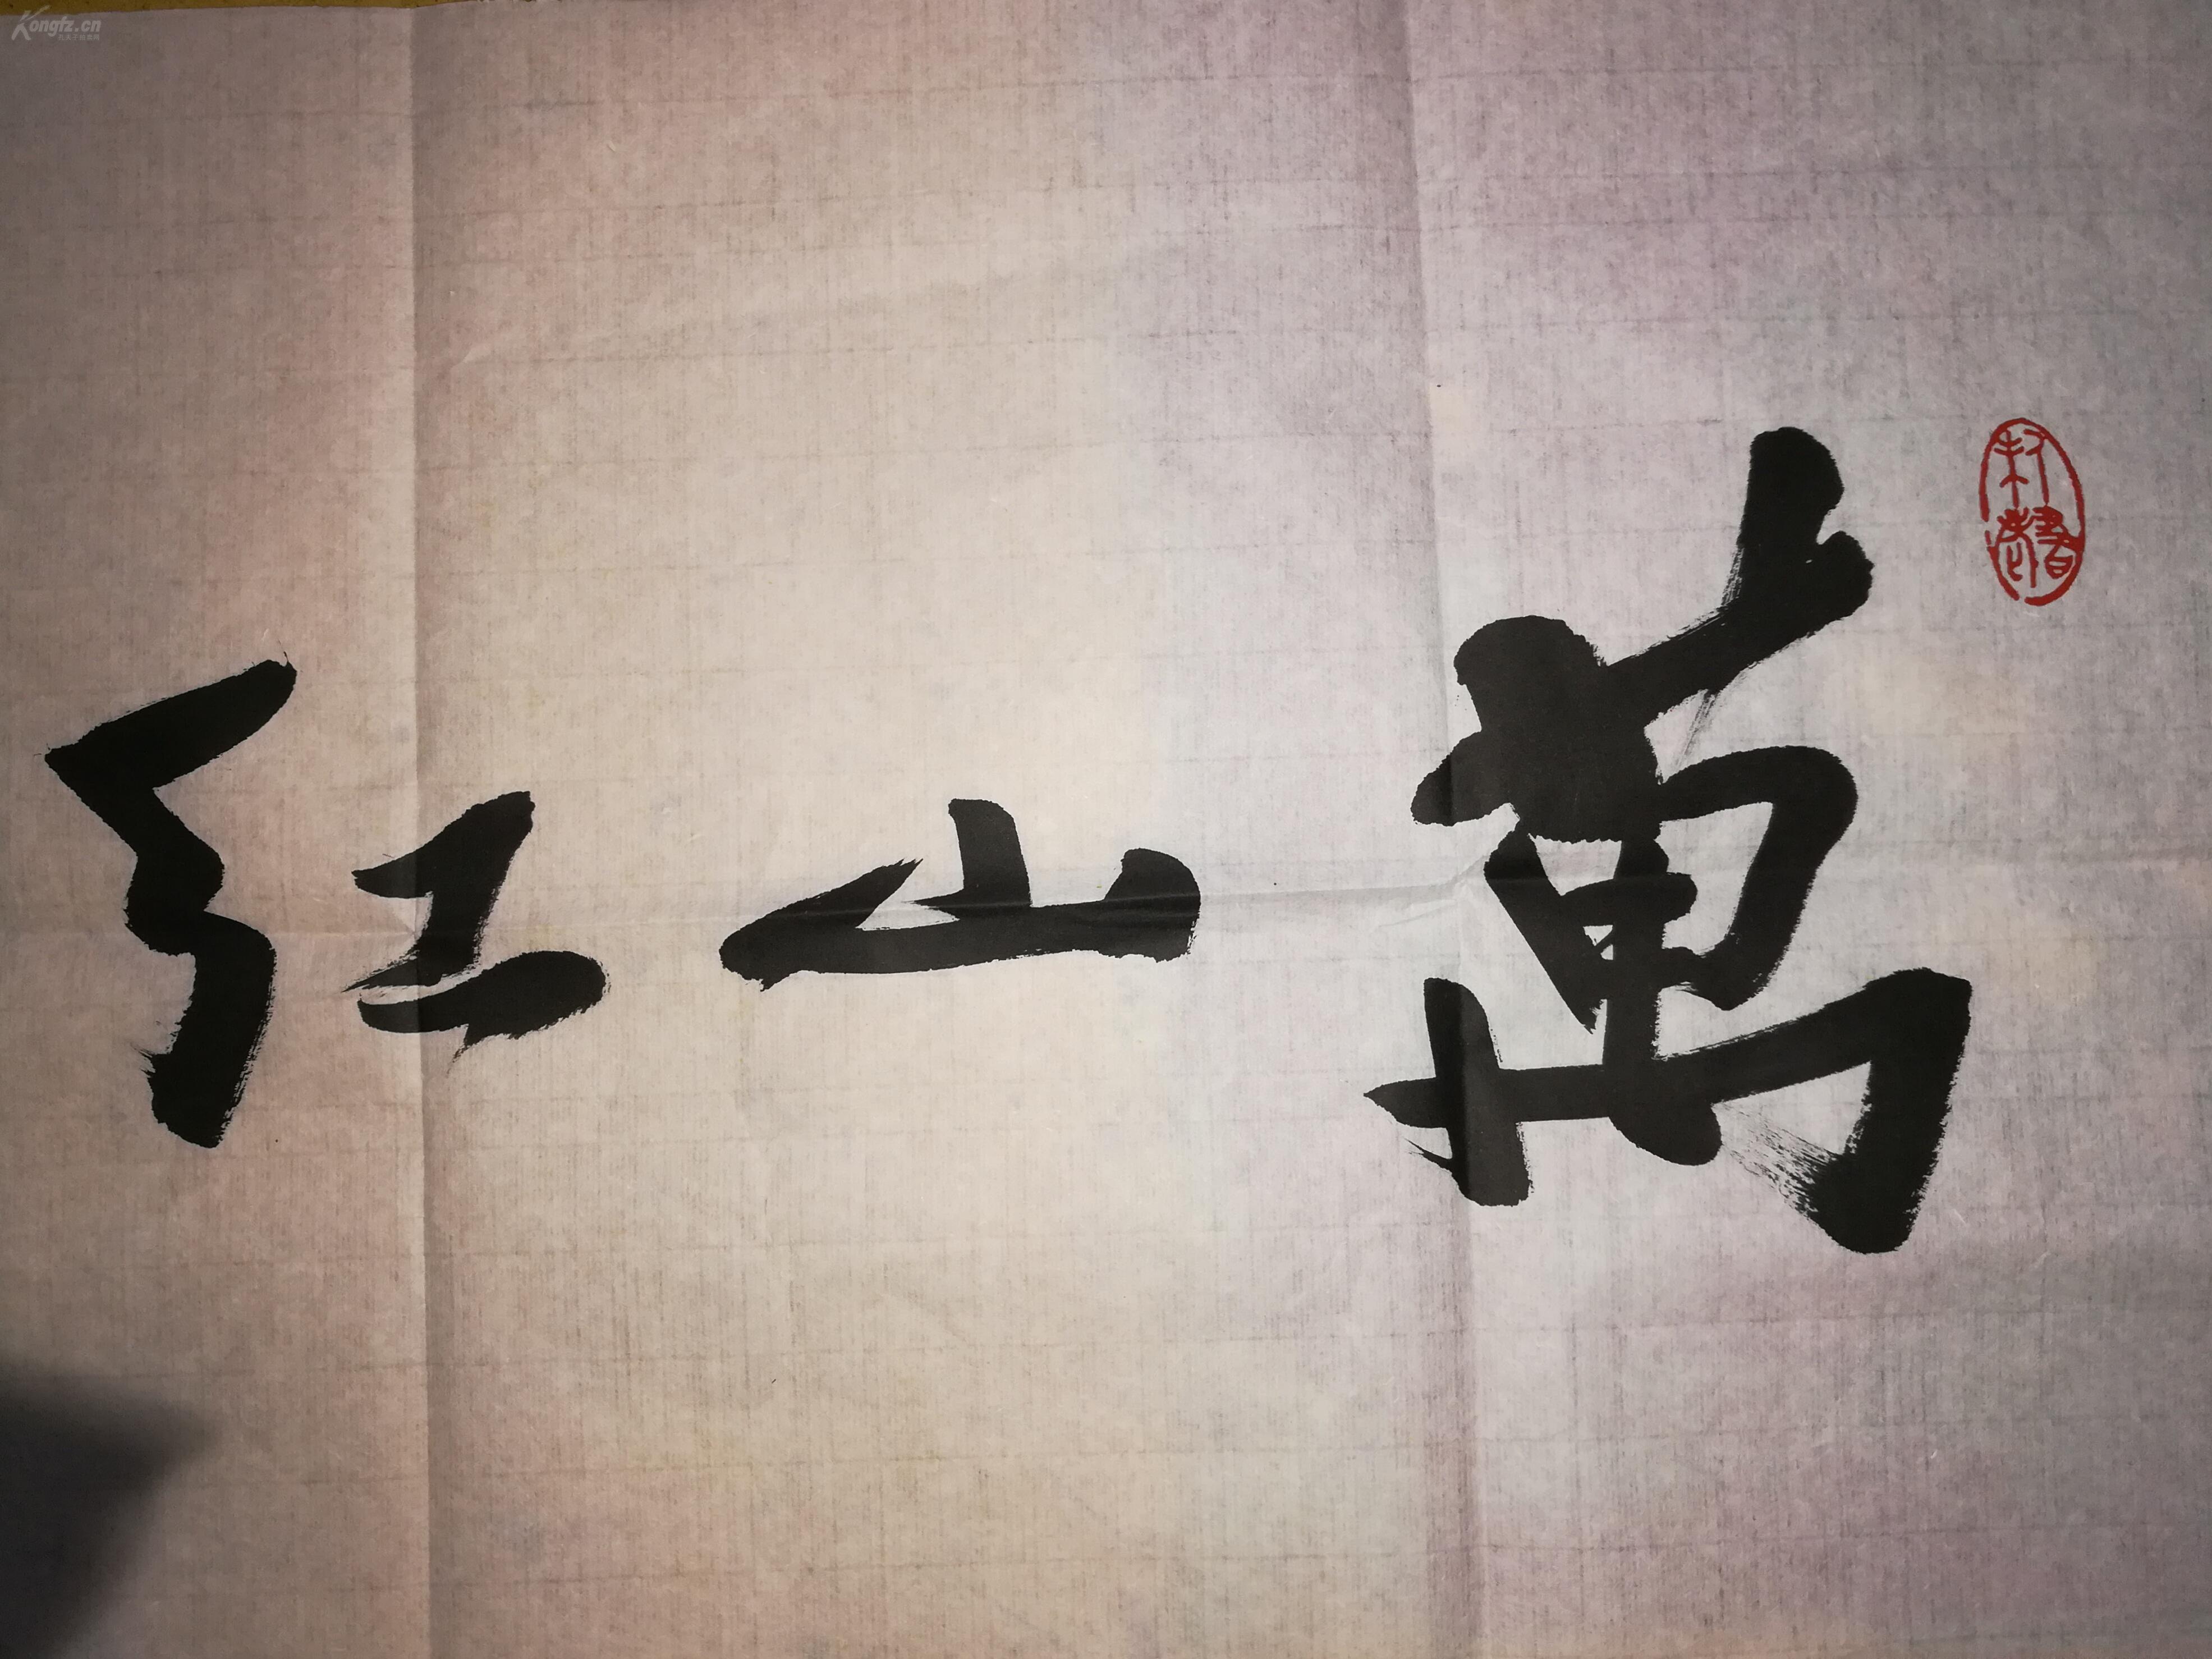 萬山红
Kongfz.cn